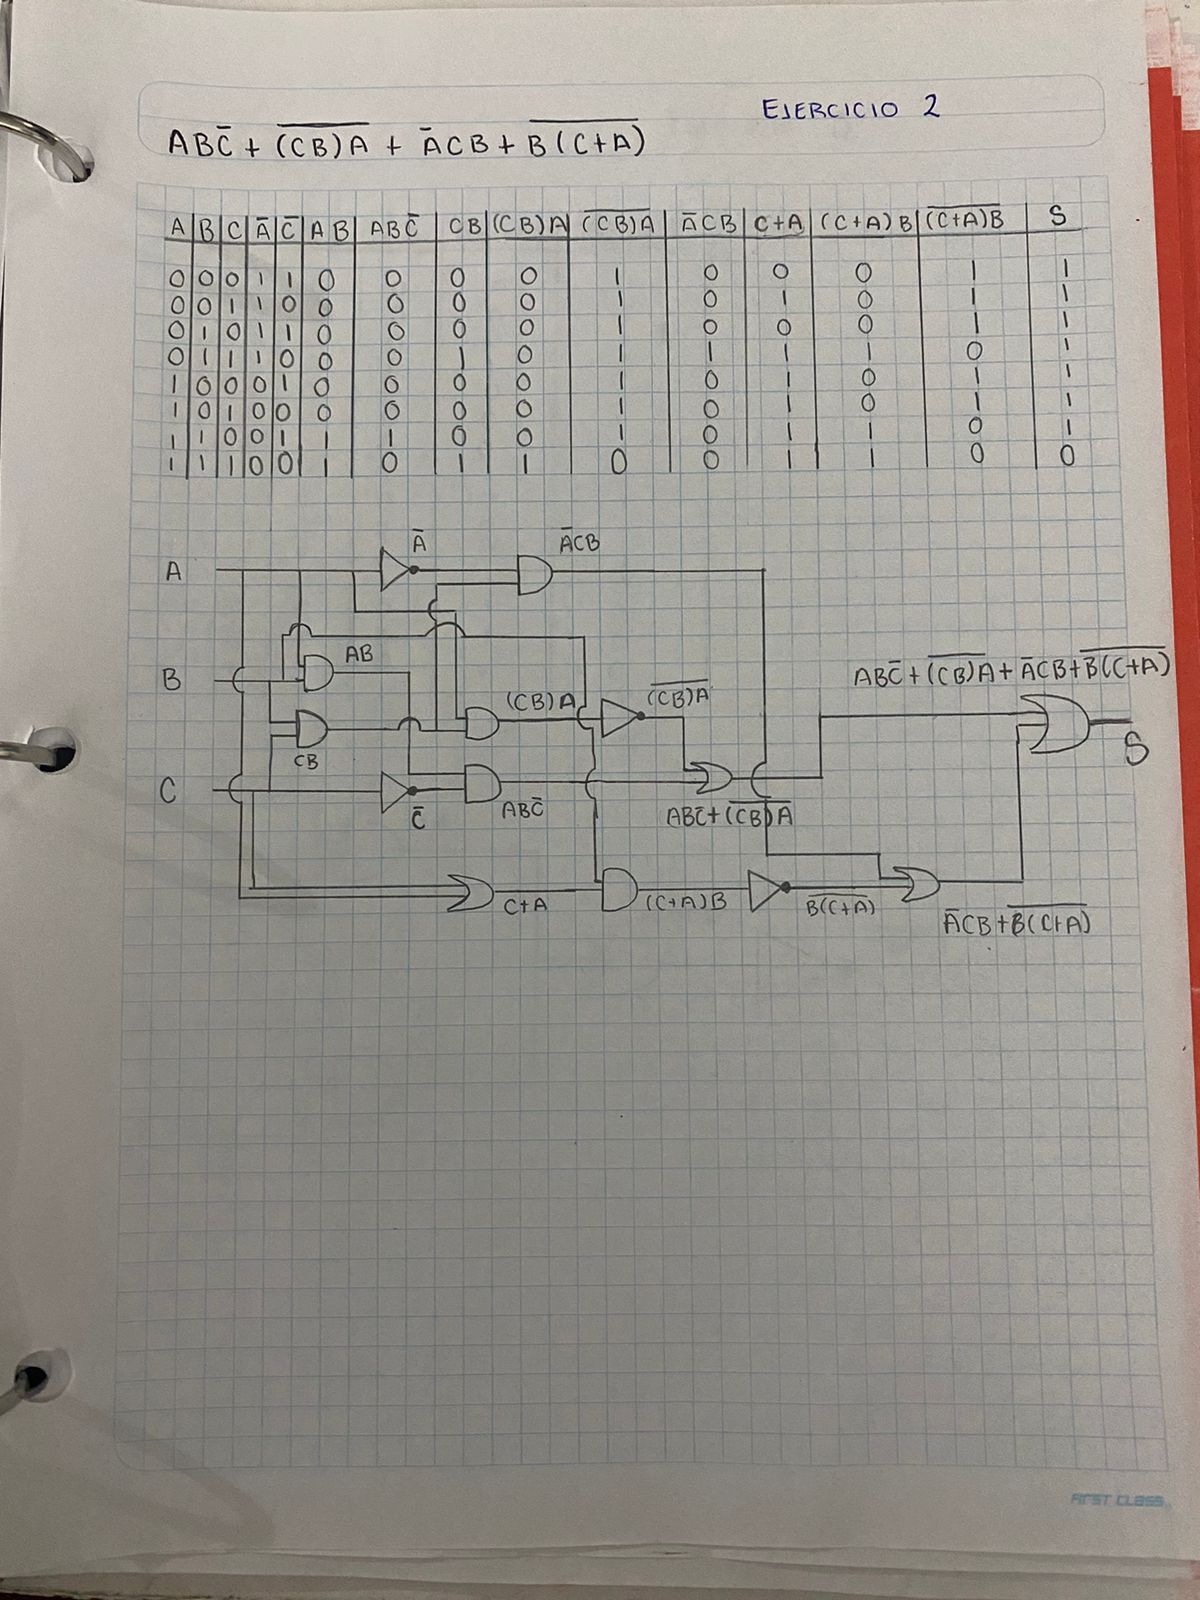 EJERCICIO 2
ABC̅ + \overline{(CB)A} + A̅CB + \overline{B(C+A)}
A | B | C | A̅ | C̅ | AB | ABC̅ | CB | (CB)A | \overline{(CB)A} | A̅CB | C+A | (C+A)B | \overline{(C+A)B} | S
0 | 0 | 0 | 1 | 1 | 0 | 0 | 0 | 0 | 1 | 0 | 0 | 0 | 1 | 1
0 | 0 | 1 | 1 | 0 | 0 | 0 | 0 | 0 | 1 | 0 | 1 | 0 | 1 | 1
0 | 1 | 0 | 1 | 1 | 0 | 0 | 0 | 0 | 1 | 0 | 0 | 0 | 1 | 1
0 | 1 | 1 | 1 | 0 | 0 | 0 | 1 | 0 | 1 | 1 | 1 | 1 | 0 | 1
1 | 0 | 0 | 0 | 1 | 0 | 0 | 0 | 0 | 1 | 0 | 1 | 0 | 1 | 1
1 | 0 | 1 | 0 | 0 | 0 | 0 | 0 | 0 | 1 | 0 | 1 | 0 | 1 | 1
1 | 1 | 0 | 0 | 1 | 1 | 1 | 0 | 0 | 1 | 0 | 1 | 1 | 0 | 1
1 | 1 | 1 | 0 | 0 | 1 | 0 | 1 | 1 | 0 | 0 | 1 | 1 | 0 | 0
A
A̅
A̅CB
B
AB
(CB)A
\overline{(CB)A}
ABC̅ + \overline{(CB)A} + A̅CB + \overline{B(C+A)}
S
CB
C
C̅
ABC̅
ABC̅ + \overline{(CB)A}
C+A
(C+A)B
\overline{B(C+A)}
A̅CB + \overline{B(C+A)}
FIRST CLASS